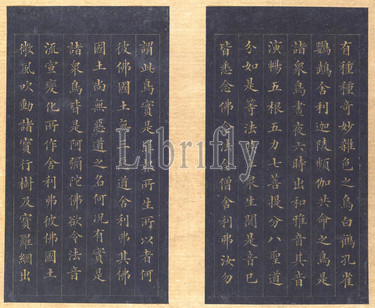 有種種奇妙雜色之鳥白鶴孔雀
鸚鵡舍利迦陵頻伽共命之鳥是
諸衆鳥晝夜六時出和雅音其音
演暢五根五力七菩提分八聖道
分如是等法衆生聞是音已
皆悉念佛念僧舍利弗汝勿
謂此鳥實是報所生所以者何
彼佛國土無道舍利弗其佛
國土尚無惡道之名何況有實是
諸衆鳥皆是阿彌陀佛欲令法音
流宣變化所作舍利弗彼佛國土
微風吹動諸寶行樹及寶羅網出
Librifly